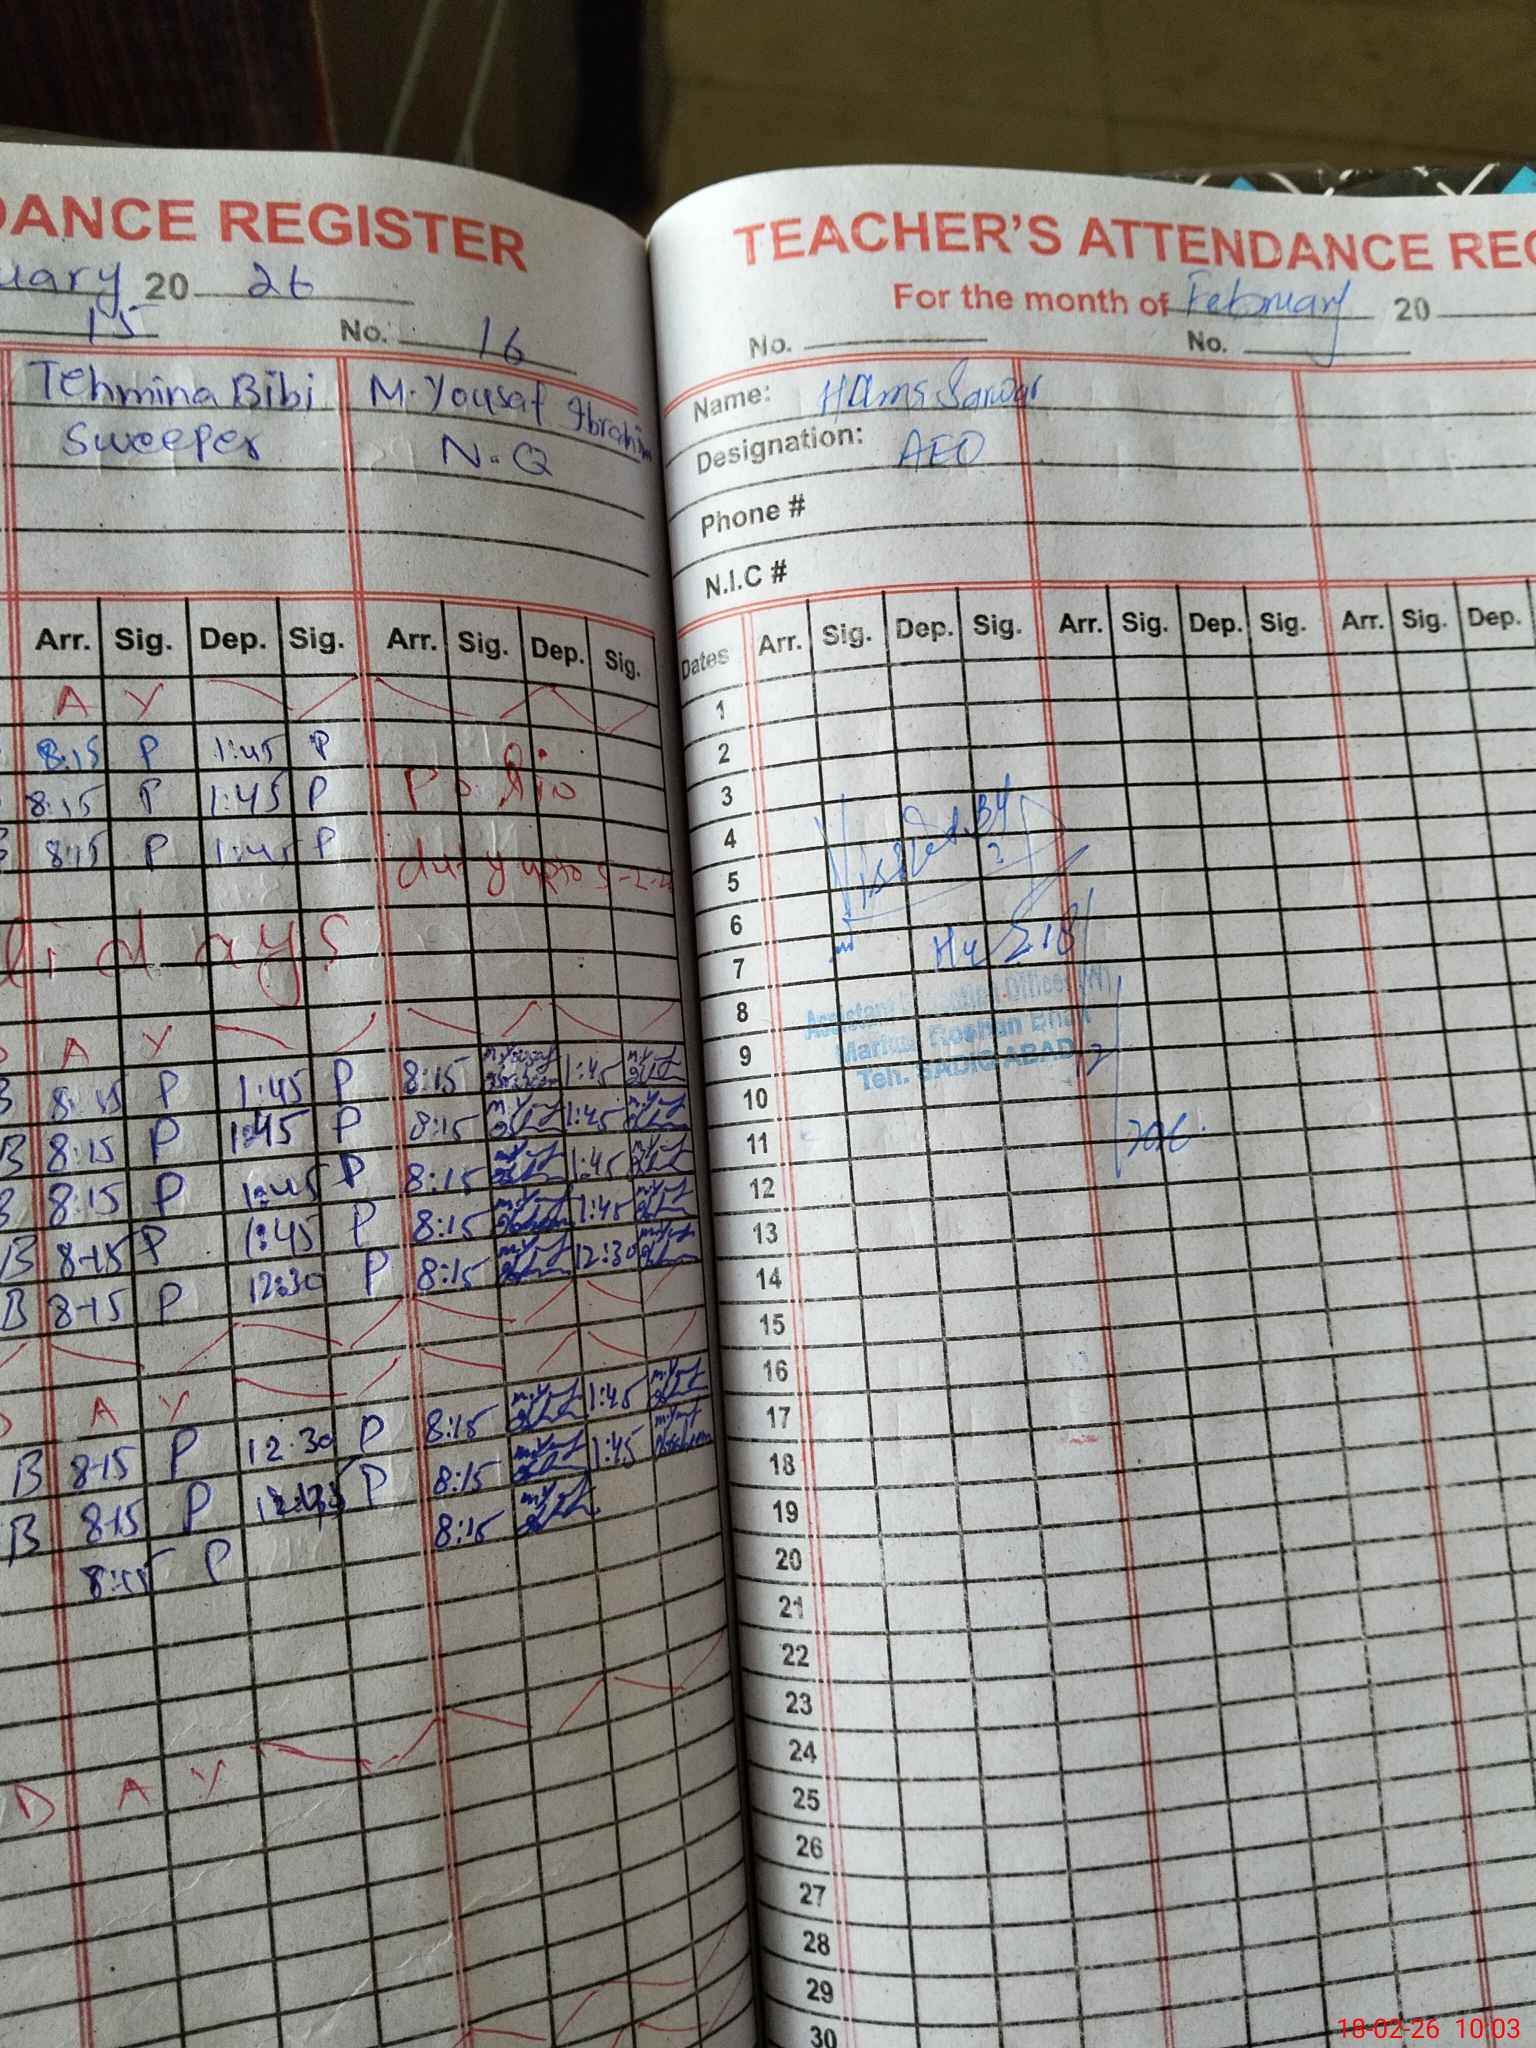 DANCE REGISTER
uary 20 26
15 No. 16
Tehmina Bibi M. Yousaf Ibrahim
Sweeper N-Q
Arr. Sig. Dep. Sig. Arr. Sig. Dep. Sig.
A Y
8:15 P 1:45 P
8:15 P 1:45 P Polio
8:15 P 1:45 P duty upto 5-2-
lidays
A Y
8:15 P 1:45 P 8:15 1:45
B 8:15 P 1:45 P 8:15 1:45
8:15 P 1:45 P 8:15 1:45
B 8-15 P 1:45 P 8:15 1:45
B 8-15 P 12:30 P 8:15 12:30
A Y
B 8-15 P 12.30 P 8:15 1:45
B 8-15 P P 8:15 1:45
8:15 P 8:15
D A Y
TEACHER'S ATTENDANCE REG
For the month of February 20
No. No.
Name: Sarwar
Designation: AEO
Phone #
N.I.C #
Dates Arr. Sig. Dep. Sig. Arr. Sig. Dep. Sig. Arr. Sig. Dep.
1
2
3
4
5
6
7
8
9
10
11
12
13
14
15
16
17
18
19
20
21
22
23
24
25
26
27
28
29
30
Visited By
Assistant Education Officer (W)
Markaz Roshan Bhait
Teh. SADIQ ABAD
18-02-26 10:03